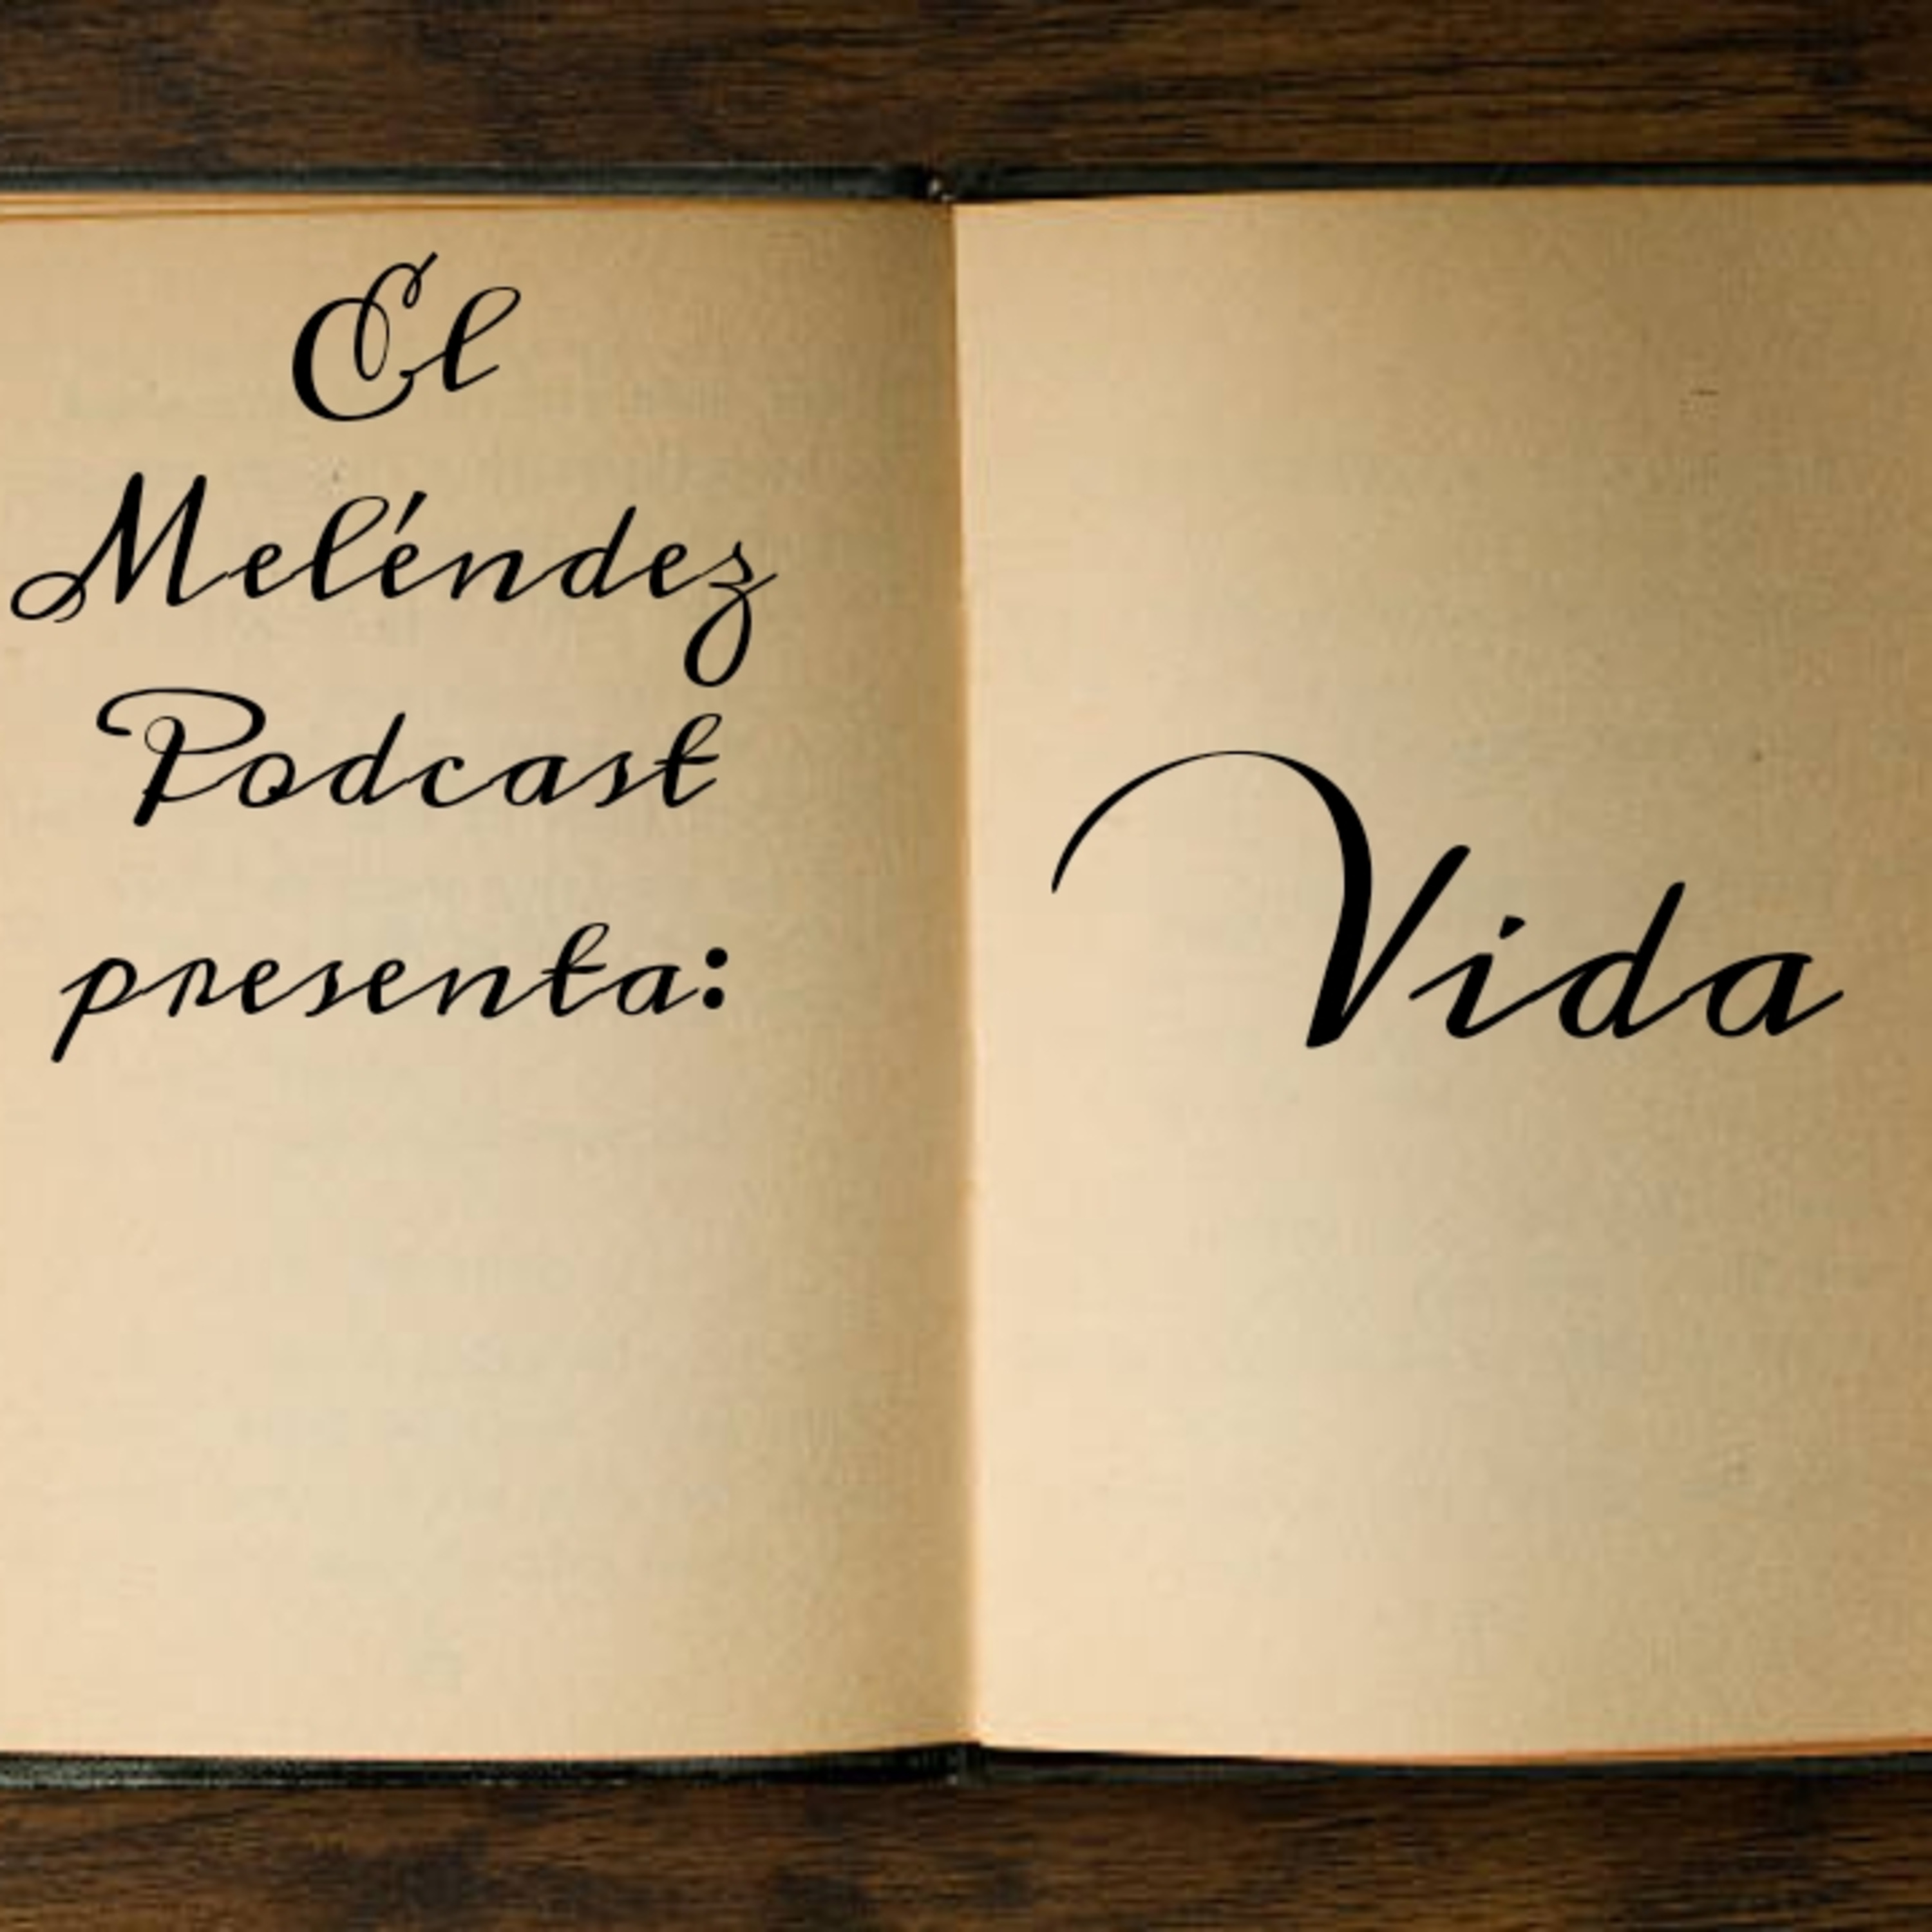 El
Meléndez
Podcast
presenta:
Vida